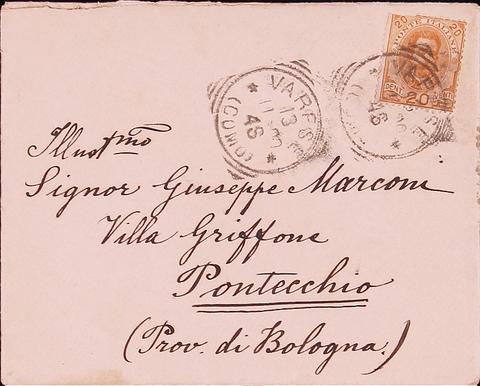 20 POSTE ITALIANE 20
20
VARESE
13
46
(COMO)
VARESE
46
Illustmo
Signor Giuseppe Marconi
Villa Griffone
Pontecchio
(Prov. di Bologna.)